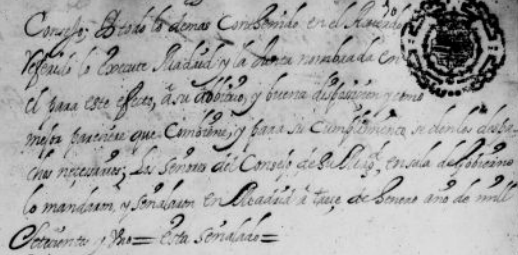 Consejo; Y todo lo demas Conthenido en el Acuerdo
referido lo execute Madrid y la Junta nombrada en
el para este efecto, â su advitrio, y buena disposicion y como
mejor pareciere que Combiene, y para su Cumplimiento se den los despa
chos necesarios; Los Señores del Consejo de Su Magd. en sala de Govierno
lo mandaron, y señalaron en Madrid â trece de Henero año de mill
Setecientos y Vno = esta señalado =